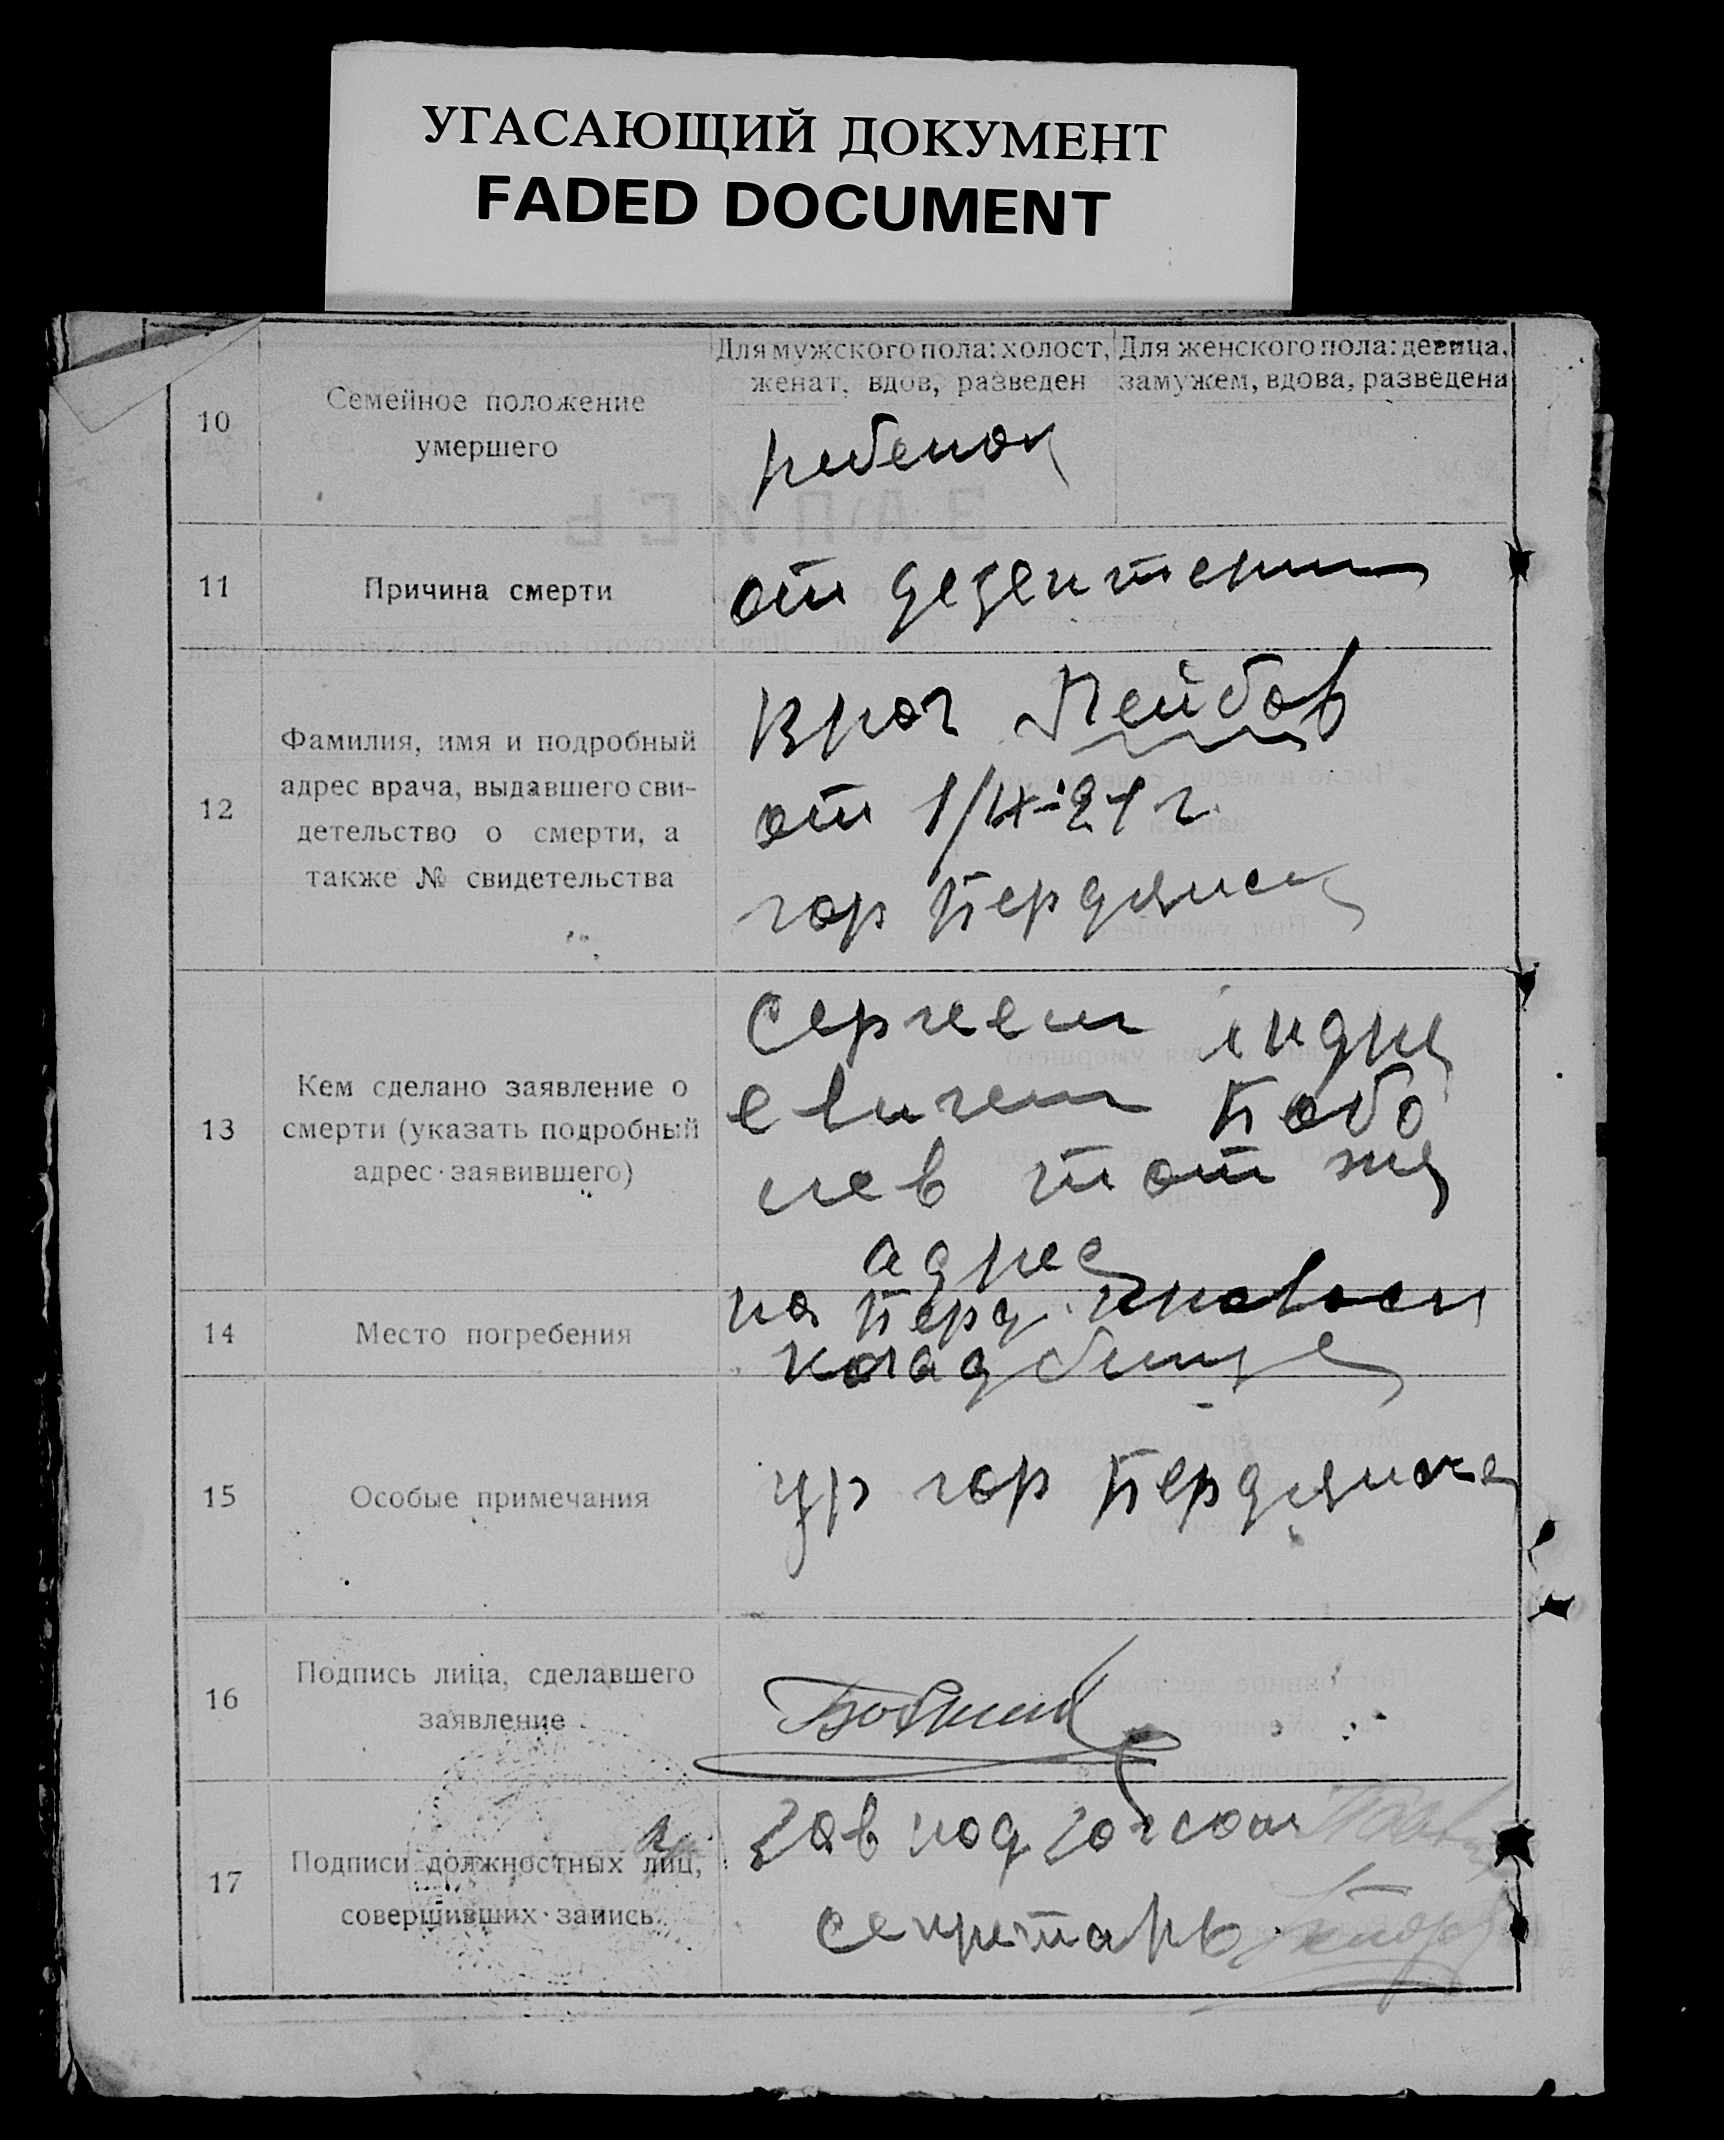 УГАСАЮЩИЙ ДОКУМЕНТ
FADED DOCUMENT
10
Семейное положение
умершего
Для мужского пола: холост,
женат, вдов, разведен
Для женского пола: девица,
замужем, вдова, разведена
ребенок
11
Причина смерти
от дезентерии
12
Фамилия, имя и подробный
адрес врача, выдавшего сви-
детельство о смерти, а
также № свидетельства
Врач Лейбов
от
гор Бердянск
13
Кем сделано заявление о
смерти (указать подробный
адрес заявившего)
Сергеем Андре
евичем Бобо
тот же
адрес
14
Место погребения
на Берд.
кладбище
15
Особые примечания
ур гор Бердянска
16
Подпись лица, сделавшего
заявление
17
Подписи должностных лиц,
совершивших запись
Зав под
секретарь